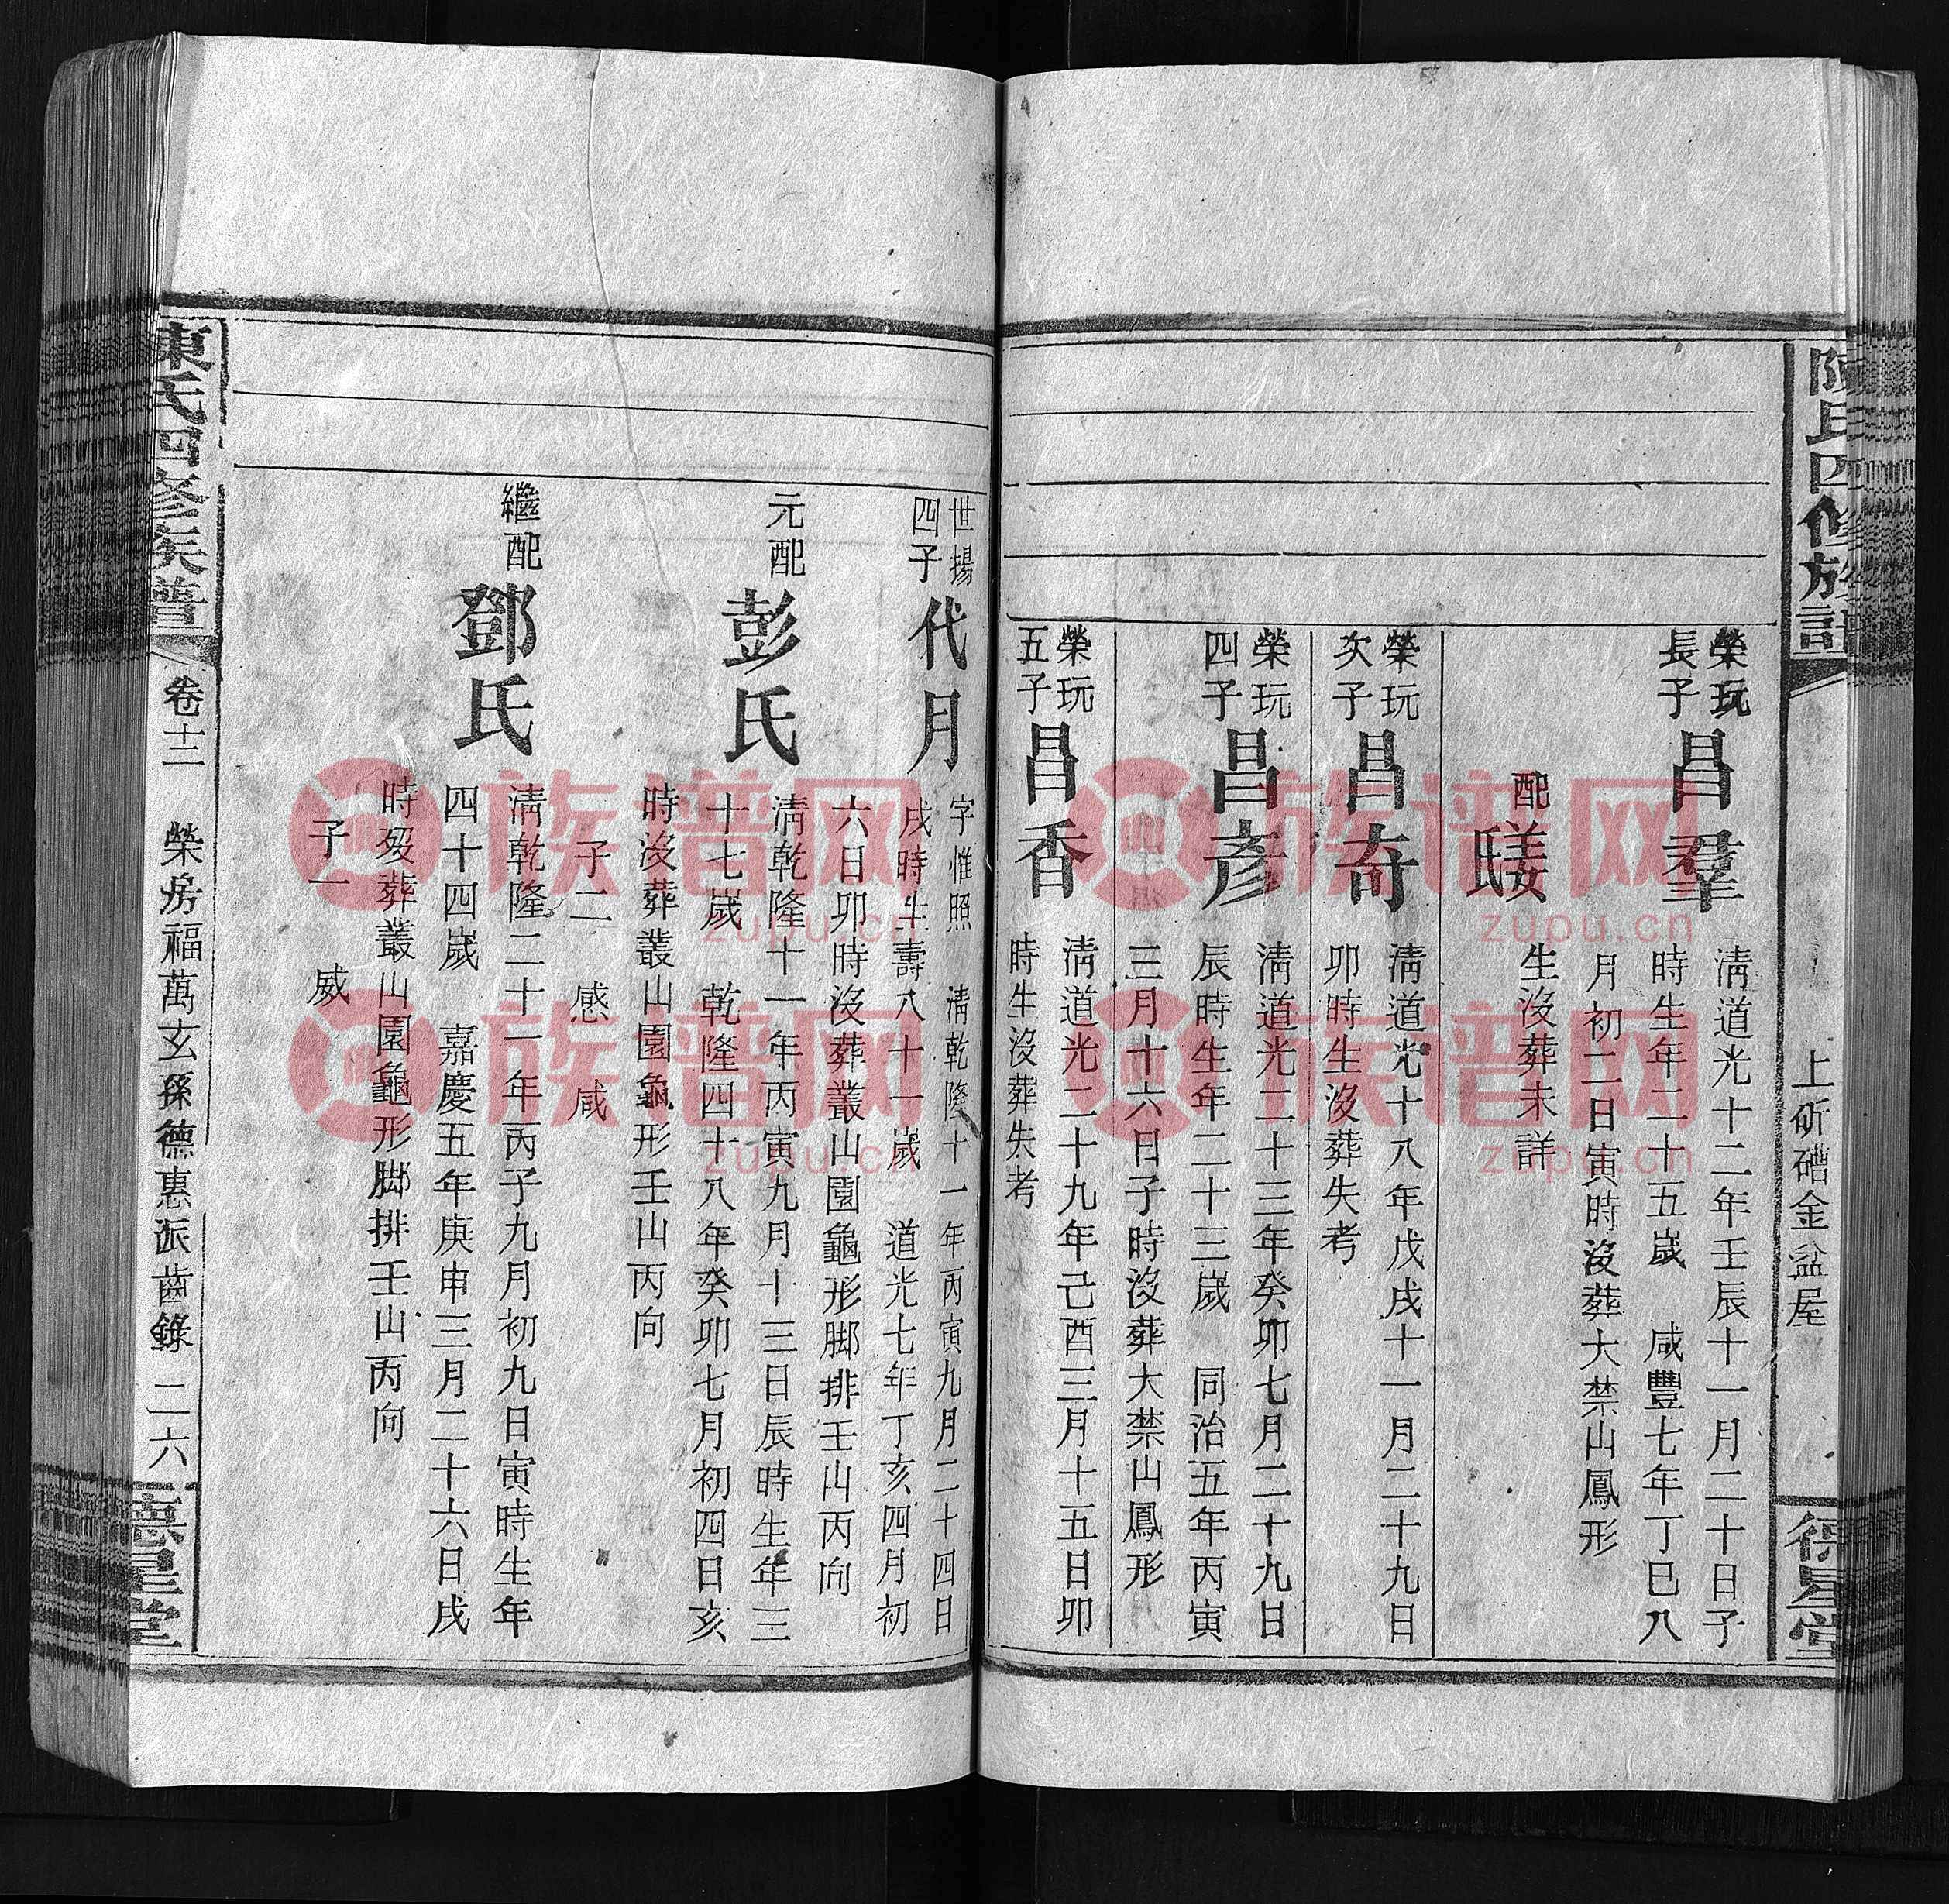 陳氏四修族譜
上斫磄金盆屋
德星堂
榮玩
長子
昌羣
清道光十二年壬辰十一月二十日子
時生年二十五歲 咸豐七年丁巳八
月初二日寅時沒葬大禁山鳳形
配
生沒葬未詳
榮玩
次子
昌奇
清道光十八年戊戌十一月二十九日
卯時生沒葬失考
榮玩
四子
昌彥
清道光二十三年癸卯七月二十九日
辰時生年二十三歲 同治五年丙寅
三月十六日子時沒葬大禁山鳳形
榮玩
五子
昌香
清道光二十九年己酉三月十五日卯
時生沒葬失考
世揚
四子
代月
字惟照 清乾隆十一年丙寅九月二十四日
戌時生壽八十一歲 道光七年丁亥四月初
六日卯時沒葬叢山園龜形脚排壬山丙向
元配
彭氏
清乾隆十一年丙寅九月十三日辰時生年三
十七歲 乾隆四十八年癸卯七月初四日亥
時沒葬叢山園龜形壬山丙向
子二 感 咸
繼配
鄧氏
清乾隆二十一年丙子九月初九日寅時生年
四十四歲 嘉慶五年庚申三月二十六日戌
時歿葬叢山園龜形脚排壬山丙向
子一 威
陳氏四修族譜
卷十二 榮房福萬玄孫德惠派齒錄 二六
德星堂
族谱网
zupu.cn
族谱网
zupu.cn
族谱网
zupu.cn
族谱网
zupu.cn